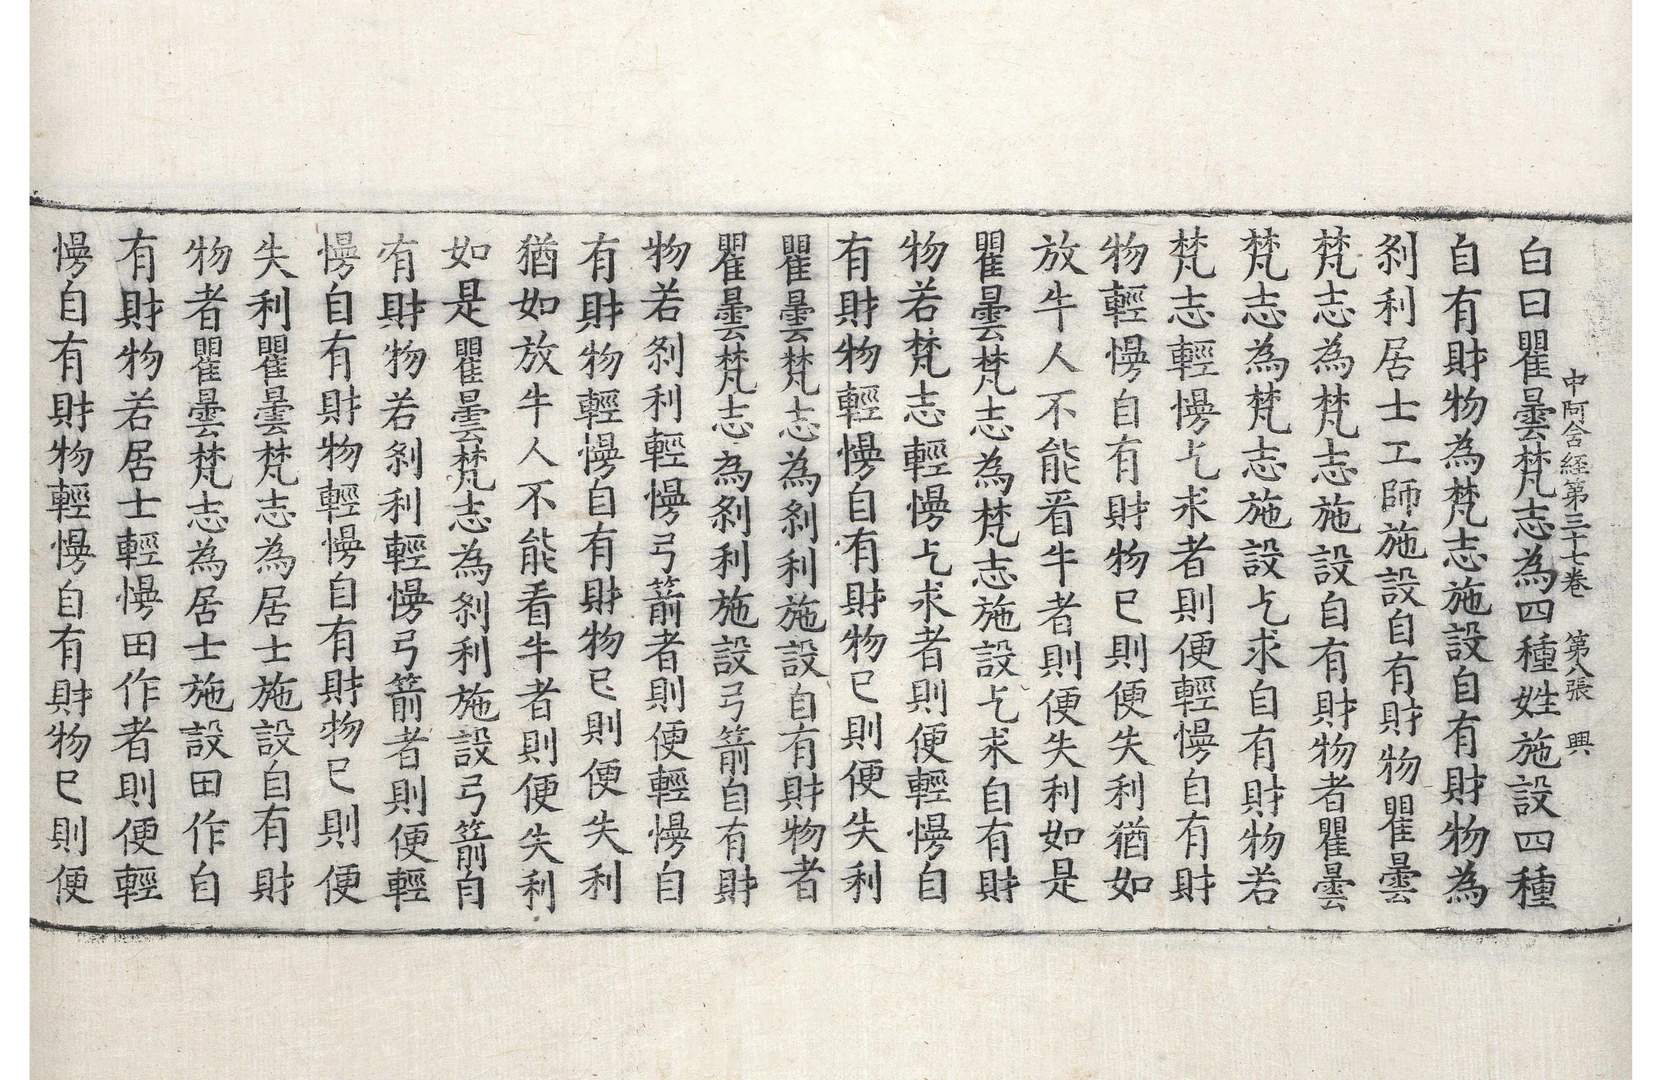 中阿含経第三十七卷 第八張 興
白曰瞿曇梵志為四種姓施設四種
自有財物為梵志施設自有財物為
刹利居士工師施設自有財物瞿曇
梵志為梵志施設自有財物者瞿曇
梵志為梵志施設乞求自有財物若
梵志輕慢乞求者則便輕慢自有財
物輕慢自有財物已則便失利猶如
放牛人不能看牛者則便失利如是
瞿曇梵志為梵志施設乞求自有財
物若梵志輕慢乞求者則便輕慢自
有財物輕慢自有財物已則便失利
瞿曇梵志為刹利施設自有財物者
瞿曇梵志為刹利施設弓箭自有財
物若刹利輕慢弓箭者則便輕慢自
有財物輕慢自有財物已則便失利
猶如放牛人不能看牛者則便失利
如是瞿曇梵志為刹利施設弓箭自
有財物若刹利輕慢弓箭者則便輕
慢自有財物輕慢自有財物已則便
失利瞿曇梵志為居士施設自有財
物者瞿曇梵志為居士施設田作自
有財物若居士輕慢田作者則便輕
慢自有財物輕慢自有財物已則便